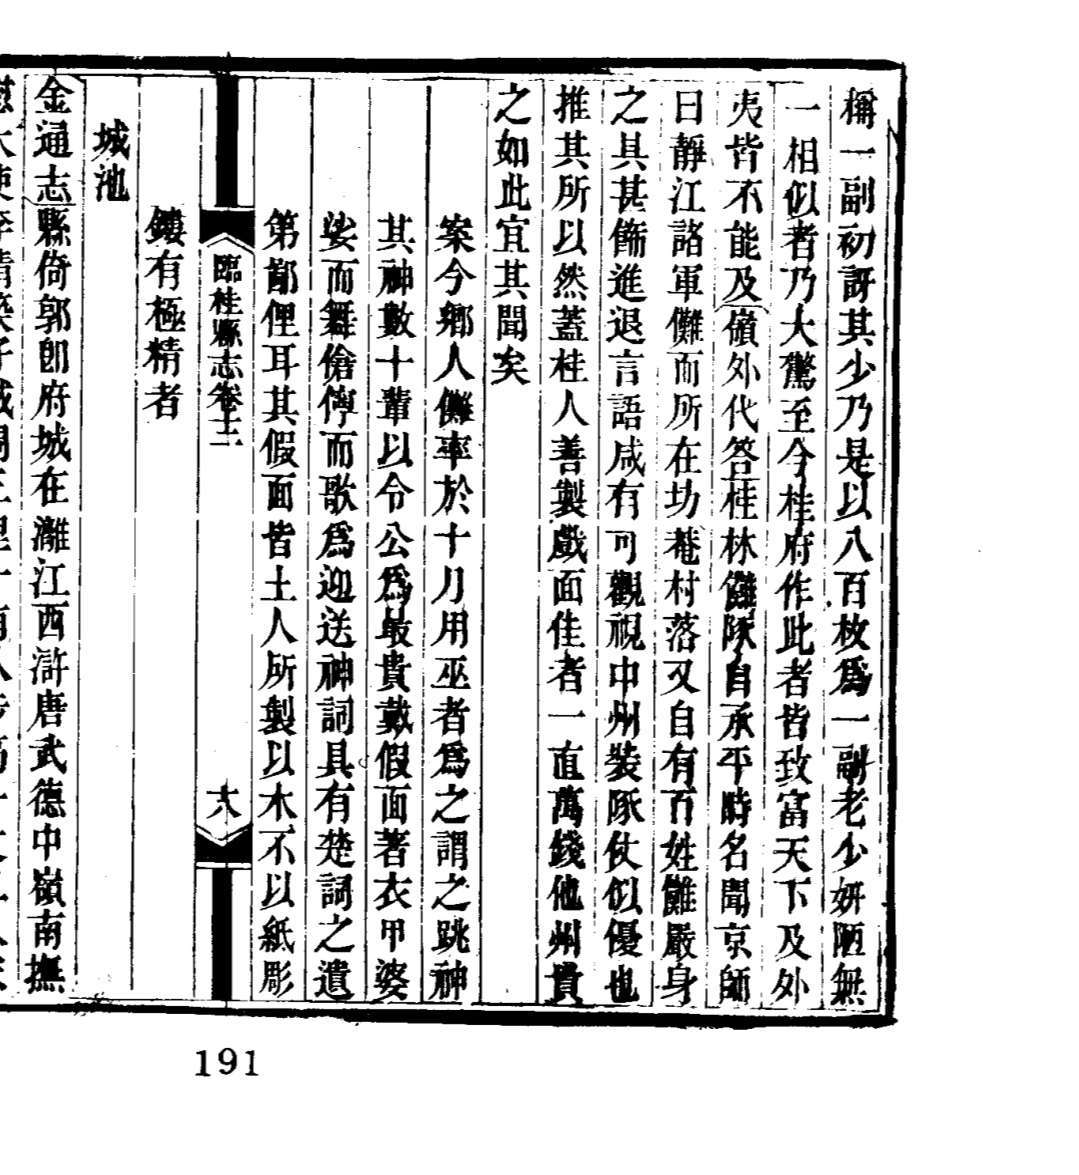 稱一副初訝其少乃是以八百枚爲一副老少妍陋無
一相似者乃大驚至今桂府作此者皆致富天下及外
夷皆不能及嶺外代答桂林儺隊自承平時名聞京師
曰靜江諸軍儺而所在坊巷村落又自有百姓儺嚴身
之具甚飾進退言語咸有可觀視中州裝隊仗似優也
推其所以然蓋桂人善製戲面佳者一直萬錢他州貴
之如此宜其聞矣
案今鄉人儺率於十月用巫者爲之謂之跳神
其神數十輩以令公爲最貴戴假面著衣甲婆
娑而舞傖儜而歌爲迎送神詞具有楚詞之遺
第鄙俚耳其假面皆土人所製以木不以紙彫
臨桂縣志卷十二
十八
鏤有極精者
城池
金通志縣倚郭卽府城在灕江西滸唐武德中嶺南撫
191